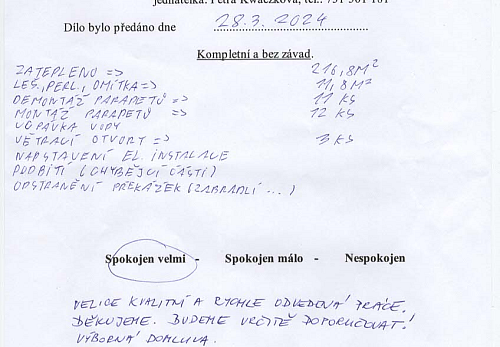 jednatelka: Petra Kwaczková, tel.: 731 501 181
Dílo bylo předáno dne 28.3. 2024
Kompletní a bez závad.
ZATEPLENO => 216,8M²
LEŠ., PERL., OMÍTKA => 11,8M²
DEMONTÁŽ PARAPETŮ => 11 KS
MONTÁŽ PARAPETŮ => 12 KS
UCPÁVKA VODY
VĚTRACÍ OTVORY => 3 KS
NADSTAVENÍ EL. INSTALACE
PODBITÍ (CHYBĚJÍCÍ ČÁSTI)
ODSTRANĚNÍ PŘEKÁŽEK (ZÁBRADLÍ ...)
Spokojen velmi - Spokojen málo - Nespokojen
VELICE KVALITNÍ A RYCHLE ODVEDENÁ PRÁCE.
DĚKUJEME. BUDEME URČITĚ DOPORUČOVAT!
VÝBORNÁ DOMLUVA.